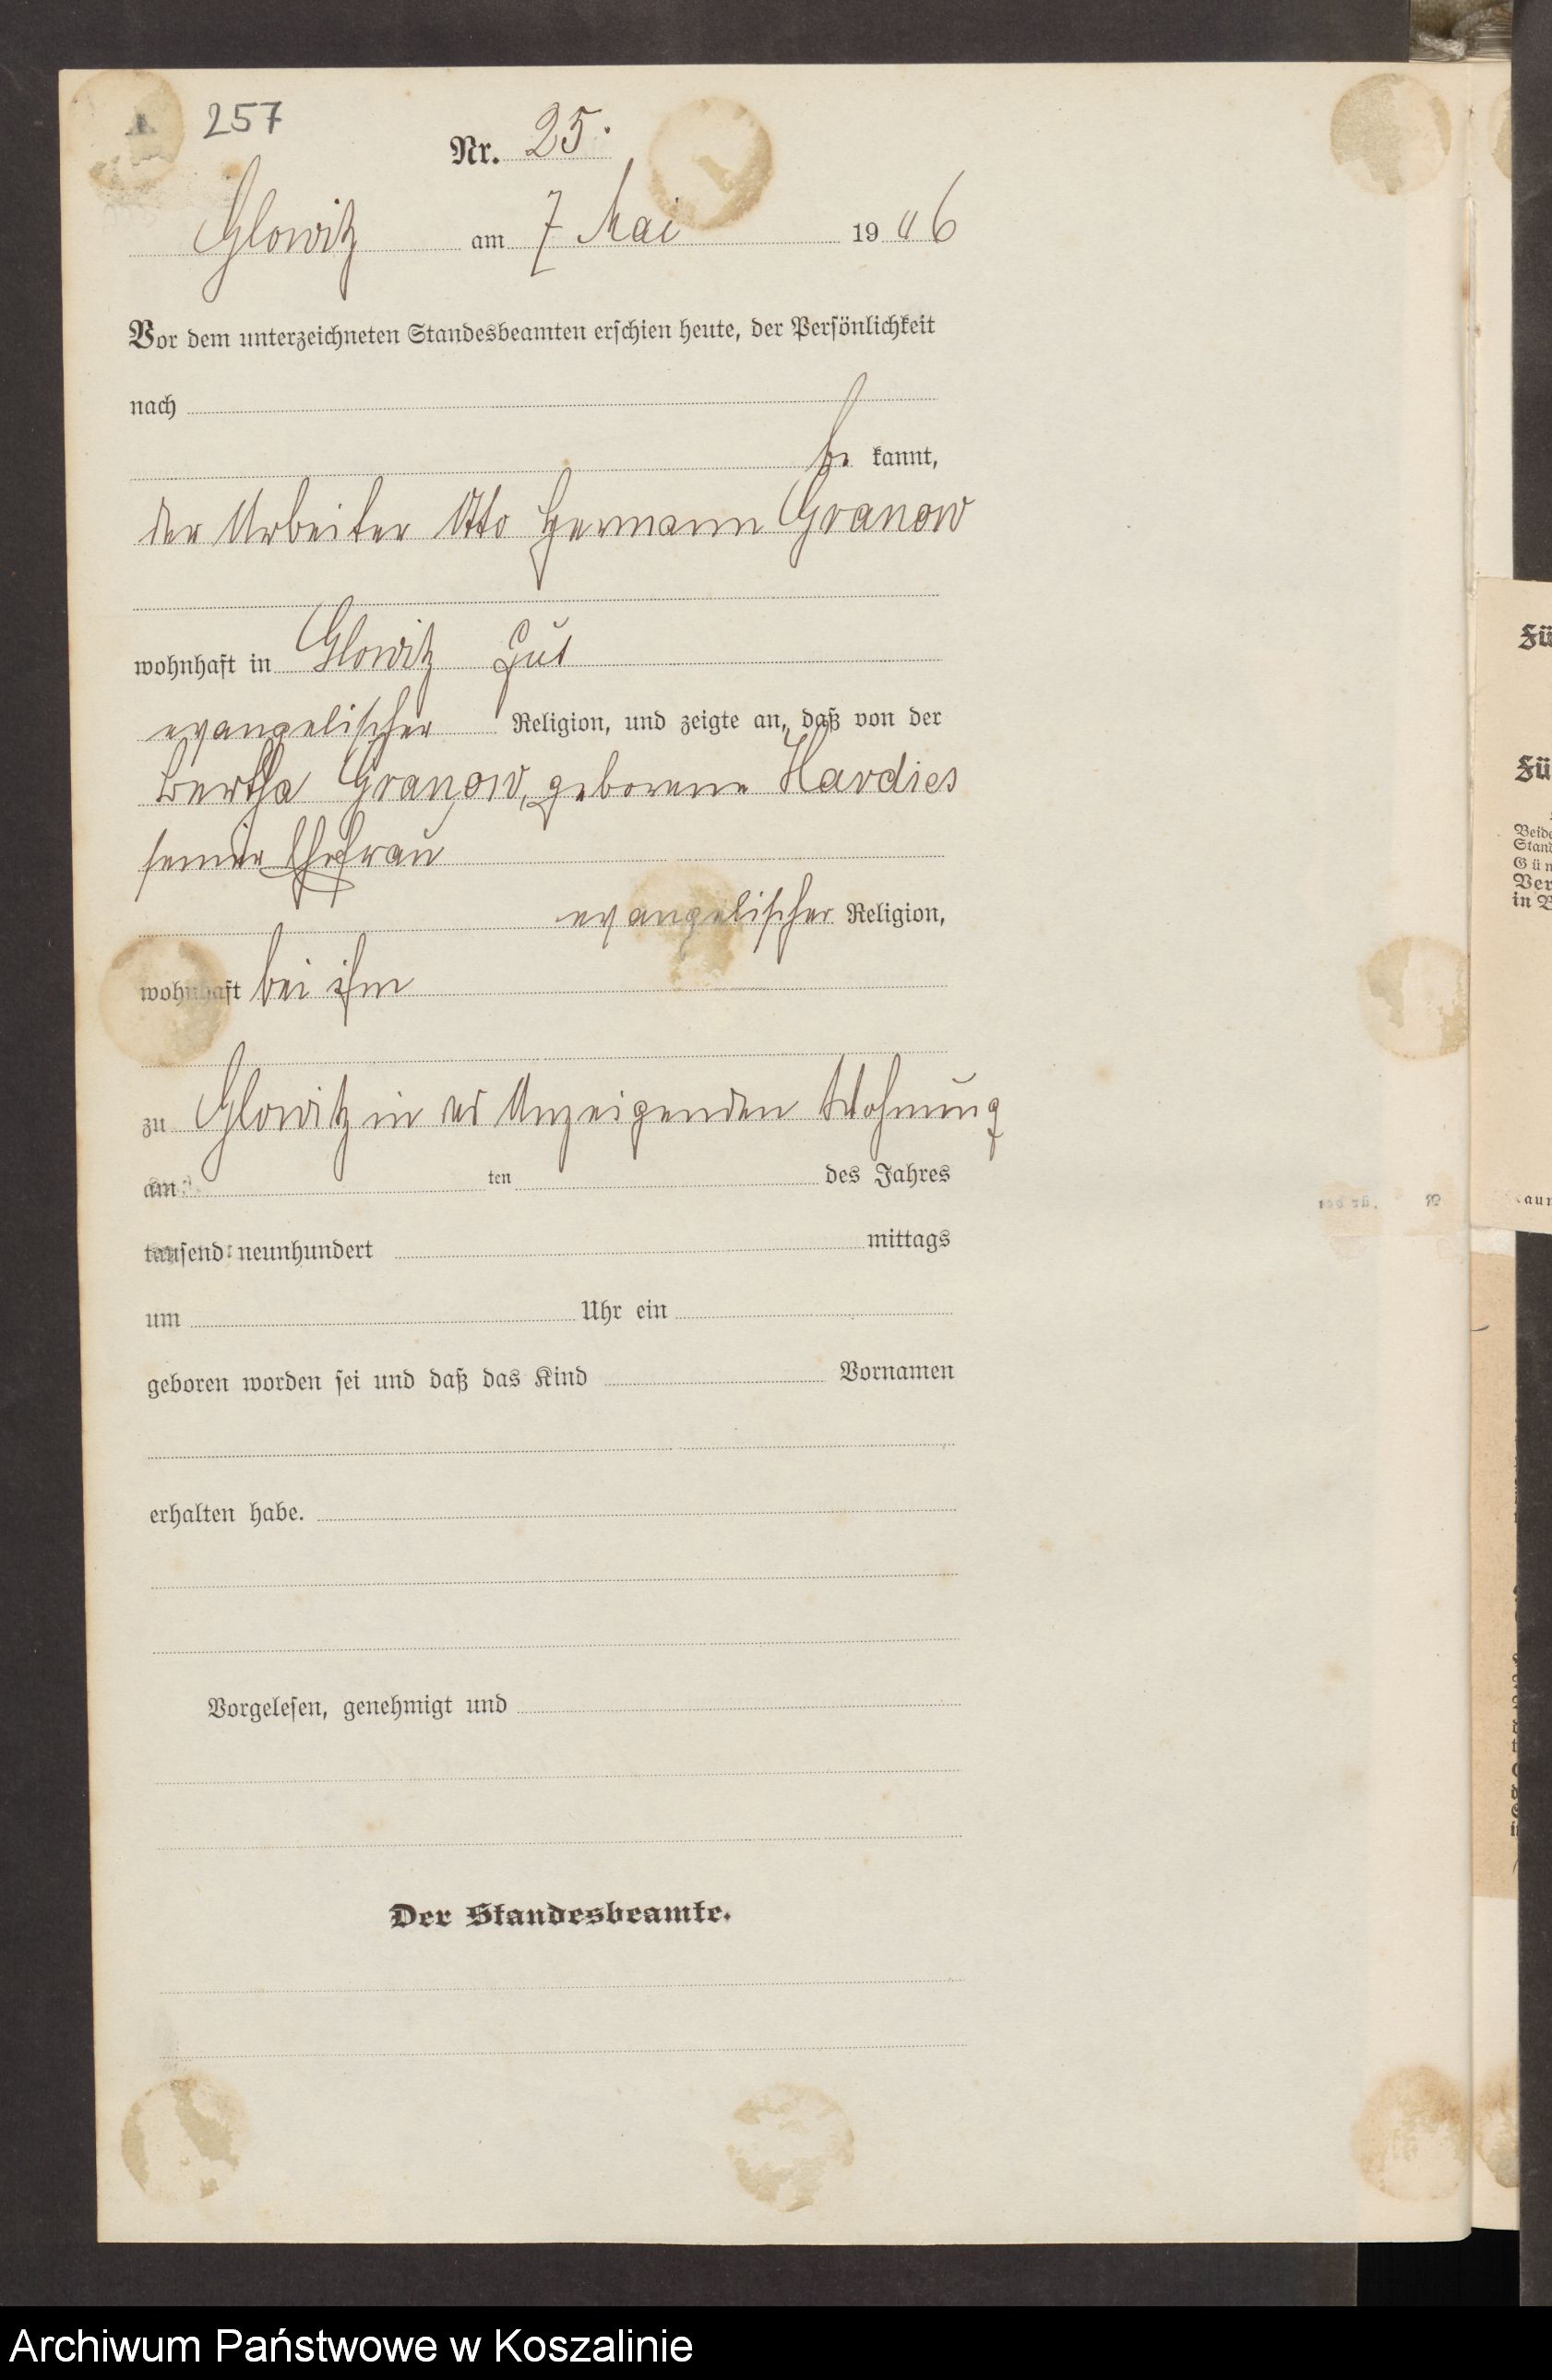 257
Nr. 25.
Glowitz am 7 Mai 1906
Vor dem unterzeichneten Standesbeamten erschien heute, der Persönlichkeit
nach
be kannt,
der Arbeiter Otto Hermann Granow
wohnhaft in Glowitz Gut
evangelischer Religion, und zeigte an, daß von der
Bertha Granow, geborene Hardies
seiner Ehefrau
evangelischer Religion,
wohnhaft bei ihm
zu Glowitz in des Anzeigenden Wohnung
am ten des Jahres
tausend neunhundert mittags
um Uhr ein
geboren worden sei und daß das Kind Vornamen
erhalten habe.
Vorgelesen, genehmigt und
Der Standesbeamte.
Fü
Fü
Beide
Stand
Gün
Ver
in B
Archiwum Państwowe w Koszalinie